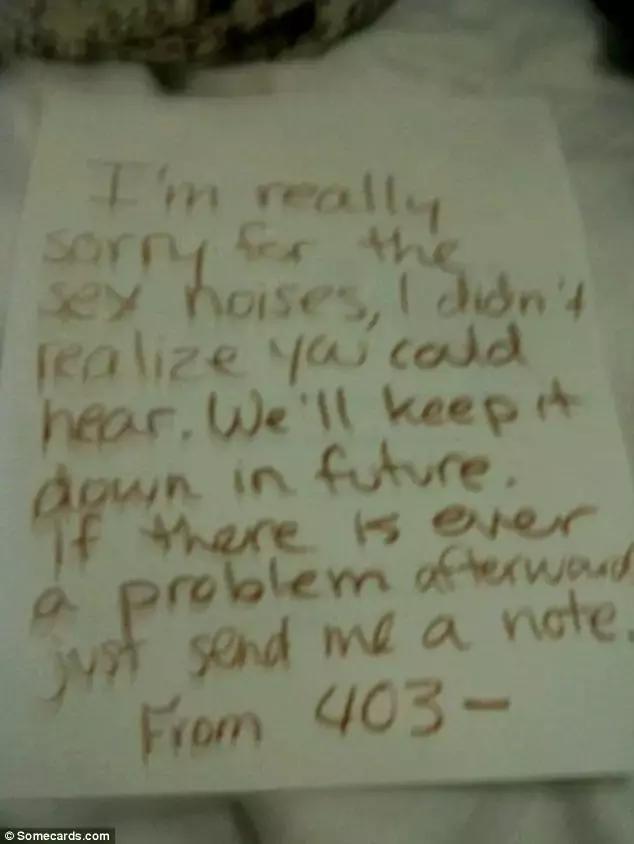 I'm really
sorry for the
sex noises, I didn't
realize you could
hear. We'll keep it
down in future.
If there is ever
a problem afterward
just send me a note.
From 403-
© Somecards.com